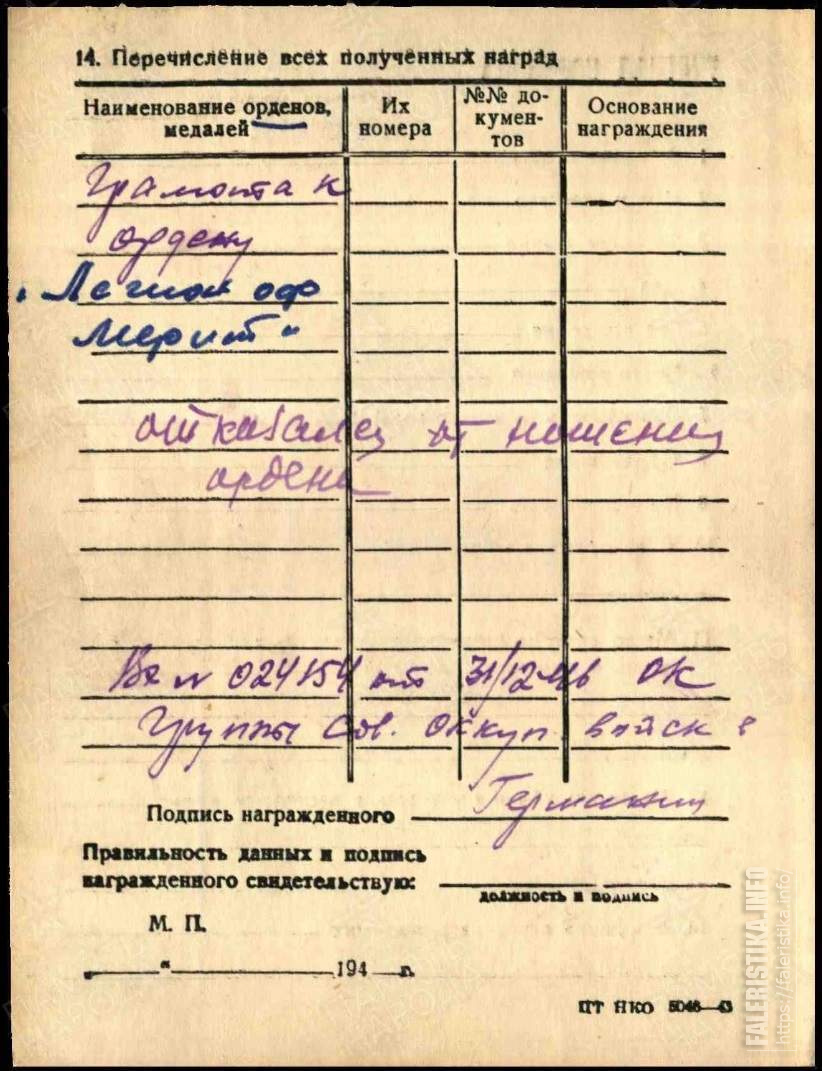 14. Перечисление всех полученных наград
Наименование орденов, медалей
Их номера
№№ документов
Основание награждения
Грамота к
ордену
"Легион оф
Мерит"
отказался от ношения
ордена
024154 от 31/12-46 ОК
Группы Сов. Оккуп. войск в
Германии
Подпись награжденного
Правильность данных и подпись
награжденного свидетельствую:
должность и подпись
М. П.
„ “ 194 г.
ЦТ НКО 5046—43
FALERISTIKA.INFO
https://faleristika.info/